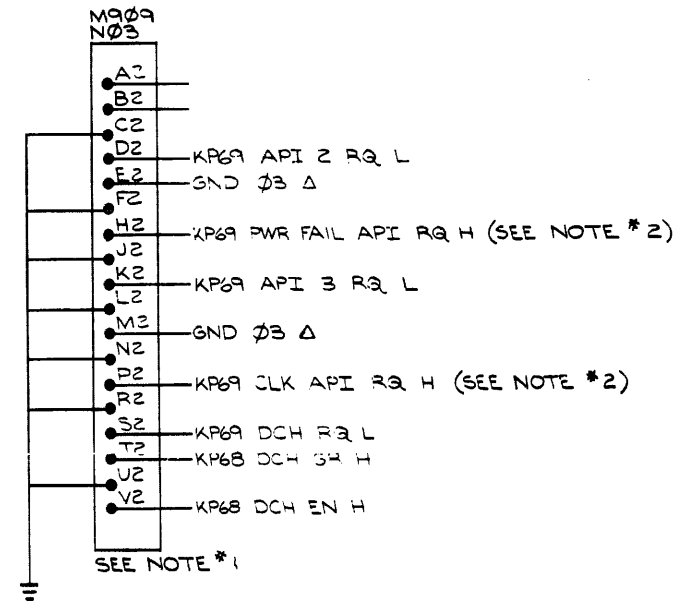 M9Ø9
NØ3
A2
B2
C2
D2 KP69 API 2 RQ L
E2 GND Ø3 Δ
F2
H2 KP69 PWR FAIL API RQ H (SEE NOTE * 2)
J2
K2 KP69 API 3 RQ L
L2
M2 GND Ø3 Δ
N2
P2 KP69 CLK API RQ H (SEE NOTE * 2)
R2
S2 KP69 DCH RQ L
T2 KP68 DCH GR H
U2
V2 KP68 DCH EN H
SEE NOTE * 1